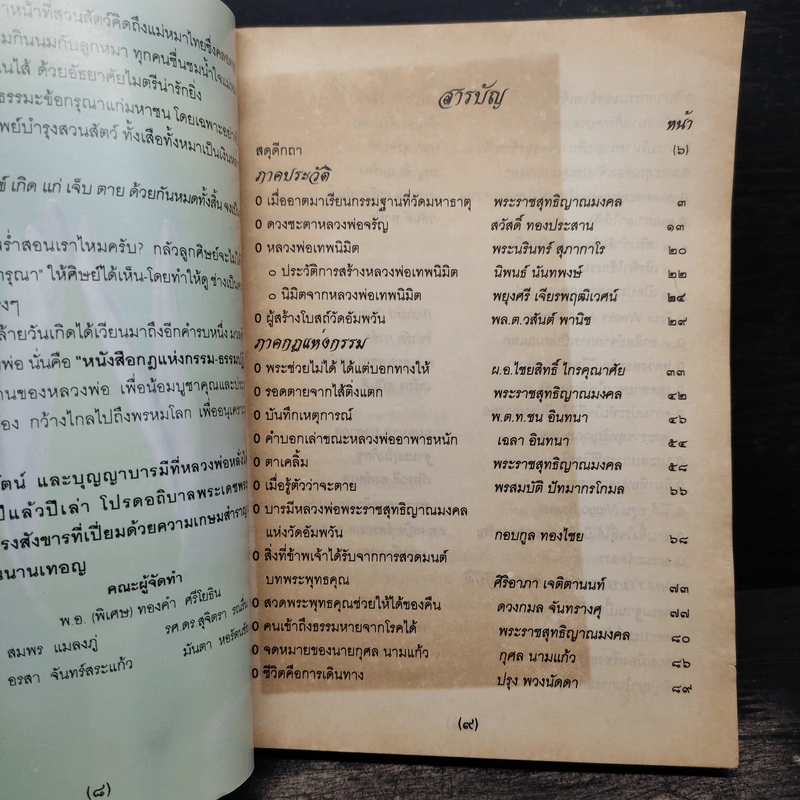 าหน้าที่สวนสัตว์คิดถึงแม่หมาไทยซึ่งคลอด
มกินนมกับลูกหมา ทุกคนชื่นชมน้ำใจแม่
นไส้ ด้วยอัธยาศัยไมตรีน่ารักยิ่ง
ธรรมะข้อกรุณาแก่มหาชน โดยเฉพาะอย่าง
พย์บำรุงสวนสัตว์ ทั้งเสือทั้งหมาเป็นเงิน
ข์ เกิด แก่ เจ็บ ตาย ด้วยกันหมดทั้งสิ้น จงเป็น
พร่ำสอนเราไหมครับ? กลัวลูกศิษย์จะไม่ได้
กรุณา" ให้ศิษย์ได้เห็น-โดยทำให้ดู ช่างเป็น
งๆ
ล้ายวันเกิดได้เวียนมาถึงอีกคำรบหนึ่ง
งพ่อ นั่นคือ "หนังสือกฎแห่งกรรม-ธรรมปฏิ
านของหลวงพ่อ เพื่อน้อมบูชาคุณและ
อง กว้างไกลไปถึงพรหมโลก เพื่ออนุเคราะ
รัตน์ และบุญญาบารมีที่หลวงพ่อหลั่ง
ปีแล้วปีเล่า โปรดอภิบาลพระเดชพระ
รงสังขารที่เปี่ยมด้วยความเกษมสำราญ
นนานเทอญ
คณะผู้จัดทำ
พ.อ. (พิเศษ) ทองคำ ศรีโยธิน
สมพร แมลงภู่ รศ.ดร.สุจิตรา
อรสา จันทร์สระแก้ว มันตา
(๘)
สารบัญ
หน้า
สดุดีกถา (๖)
ภาคประวัติ
๐ เมื่ออาตมาเรียนกรรมฐานที่วัดมหาธาตุ พระราชสุทธิญาณมงคล ๓
๐ ดวงชะตาหลวงพ่อจรัญ สวัสดิ์ ทองประสาน ๑๓
๐ หลวงพ่อเทพนิมิต พระนรินทร์ สุภากาโร ๒๐
๐ ประวัติการสร้างหลวงพ่อเทพนิมิต นิพนธ์ นันทพงษ์ ๒๒
๐ นิมิตจากหลวงพ่อเทพนิมิต พยุงศรี เจียรพฤฒิเวศน์ ๒๔
๐ ผู้สร้างโบสถ์วัดอัมพวัน พล.ต.วสันต์ พานิช ๒๙
ภาคกฎแห่งกรรม
๐ พระช่วยไม่ได้ ได้แต่บอกทางให้ ผ.อ.ไชยสิทธิ์ ไกรคุณาศัย ๓๓
๐ รอดตายจากไส้ติ่งแตก พระราชสุทธิญาณมงคล ๔๒
๐ บันทึกเหตุการณ์ พ.ต.ท.ชน อินทนา ๔๖
๐ คำบอกเล่าขณะหลวงพ่ออาพาธหนัก เฉลา อินทนา ๕๔
๐ ตาเคลิ้ม พระราชสุทธิญาณมงคล ๕๘
๐ เมื่อรู้ตัวว่าจะตาย พรสมบัติ ปัทมากรโกมล ๖๖
๐ บารมีหลวงพ่อพระราชสุทธิญาณมงคล
แห่งวัดอัมพวัน กอบกูล ทองไชย ๖๘
๐ สิ่งที่ข้าพเจ้าได้รับจากการสวดมนต์
บทพระพุทธคุณ ศิริอาภา เจติตานนท์ ๗๓
๐ สวดพระพุทธคุณช่วยให้ได้ของคืน ดวงกมล จันทรางศุ ๗๗
๐ คนเข้าถึงธรรมหายจากโรคได้ พระราชสุทธิญาณมงคล ๘๐
๐ จดหมายของนายกุศล นามแก้ว กุศล นามแก้ว ๘๖
๐ ชีวิตคือการเดินทาง ปรุง พวงนัดดา ๘๙
(๙)